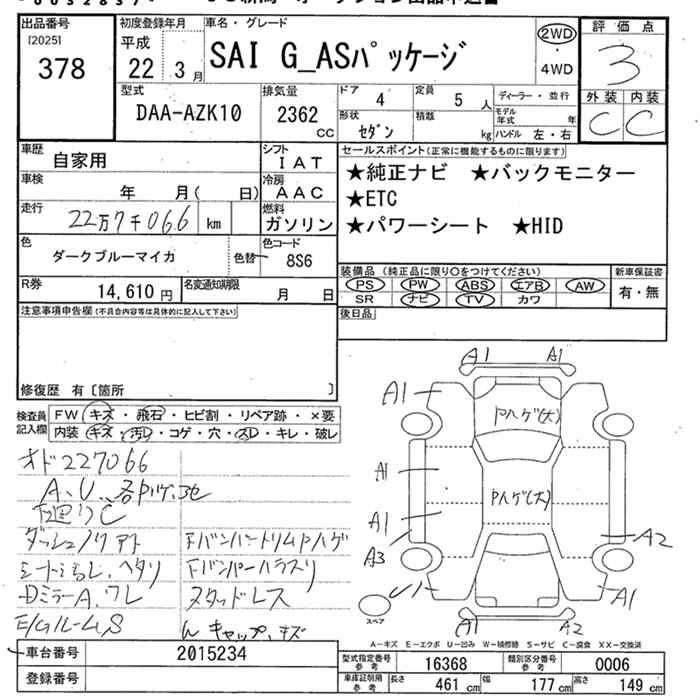 出品番号
[2025]
378
初度登録年月
平成
22年 3月
車名・グレード
SAI G_ASパッケージ
2WD
4WD
評価点
3
外装 内装
C C
型式
DAA-AZK10
排気量
2362 CC
ドア 4
定員 5 人
ディーラー・並行
形状 セダン
積載 kg
モデル年式 年
ハンドル 左・右
車歴 自家用
シフト IAT
車検 年 月( 日)
冷房 AAC
走行 22万7千066 km
燃料 ガソリン
色 ダークブルーマイカ
色替
色コード 8S6
R券 14,610円
名変通知期限 月 日
セールスポイント(正常に機能するものに限ります)
★純正ナビ ★バックモニター
★ETC
★パワーシート ★HID
装備品 (純正品に限り○をつけてください)
新車保証書
PS PW ABS エアB AW
SR ナビ TV カワ
有・無
後日品
注意事項申告欄(不具合内容等は具体的に記入して下さい)
修復歴 有〔箇所 〕
検査員記入欄
FW キズ・飛石・ヒビ割・リペア跡・×要
内装 キズ・汚レ・コゲ・穴・スレ・キレ・破レ
オド227066
A、U、各Pハゲ、
廻りC
ダッシュノリアト
シートよごレ、ヘタリ
DミラーA、ワレ
FバンパートリムPハゲ
Fバンパーハラスリ
スタッドレス
キャップ、キズ
A1 A1
A1
Pハゲ(大)
A1
Pハゲ(大)
A1
A2
A3
U1
A1
スペア
A1 A2
A-キズ E-エクボ U-凹み W-補修跡 S-サビ C-腐食 XX-交換済
車台番号 2015234
登録番号
型式指定番号 参考 16368
類別区分番号 参考 0006
車庫証明用 参考 長さ 461 cm 幅 177 cm 高さ 149 cm